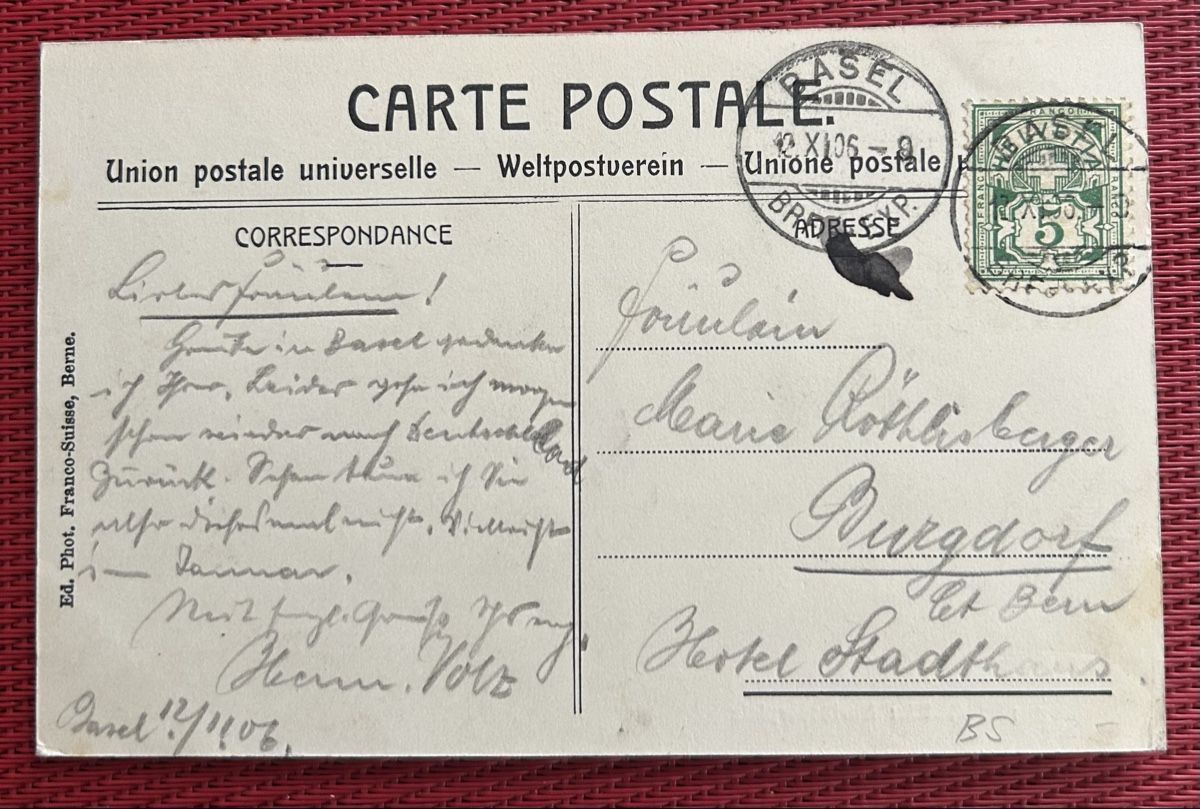 CARTE POSTALE.
Union postale universelle — Weltpostverein — Unione postale
BASEL
12.XI.06 – 9
BRF. EXP.
5
CORRESPONDANCE
ADRESSE
Liebes Fräulein!
Heute in Basel gedenke
ich Ihrer. Leider gehe ich morgen
schon wieder nach Deutschland
zurück. Sehen kann ich Sie
also diesesmal nicht. Vielleicht
im Januar.
Mit Gruss Ihr
Herm. Volz
Basel 12/11 06.
Fräulein
Marie Röthlisberger
Burgdorf
Ct Bern
Hotel Stadthaus.
BS
Ed. Phot. Franco-Suisse, Berne.